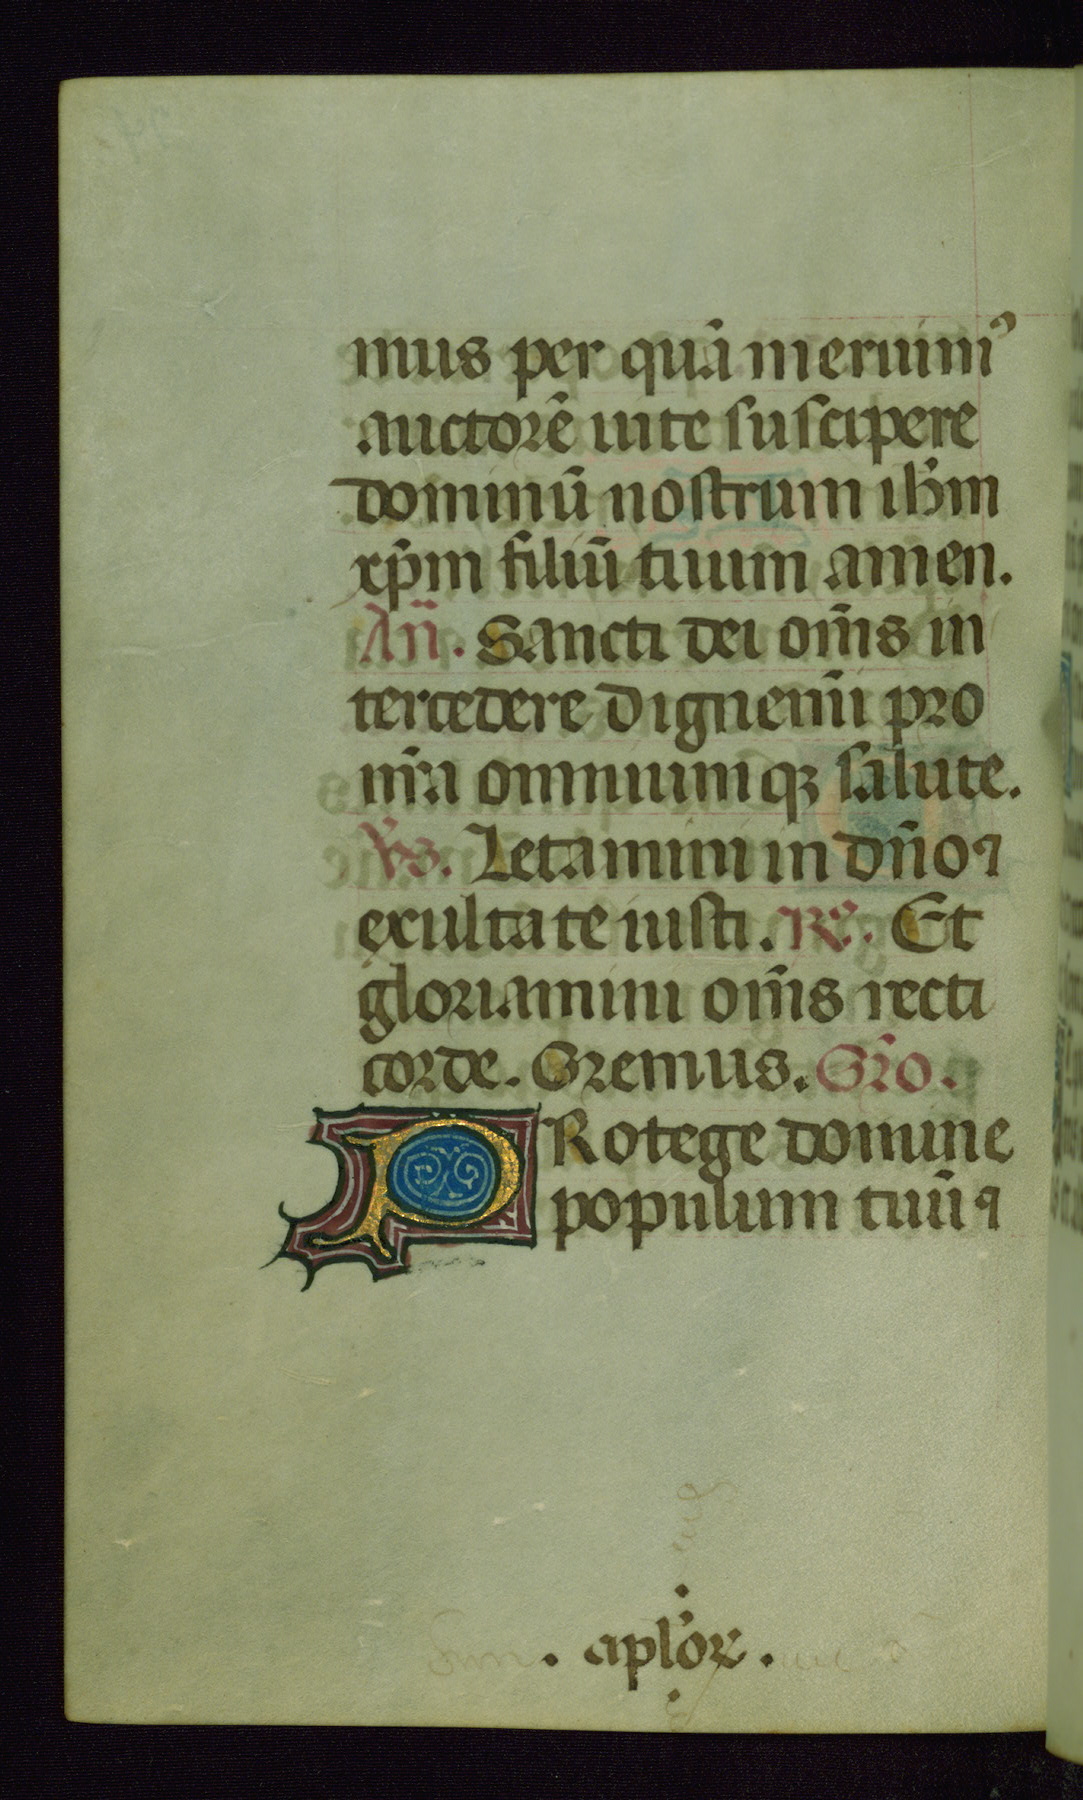 mus per quā meruimꝰ
auctorē uite suscipere
dominū nostrum ihm̄
xp̄m filiū tuum amen.
An̄. Sancti dei om̄s in
tercedere dignemī pro
nr̄a omniumqꝫ salute.
V̄s. Letamini in dn̄o ⁊
exultate iusti. R̄e. Et
gloriamini om̄s recti
corde. Oremus. Or̄o.
PRotege domine
populum tuū ⁊
. apl̄oꝝ .